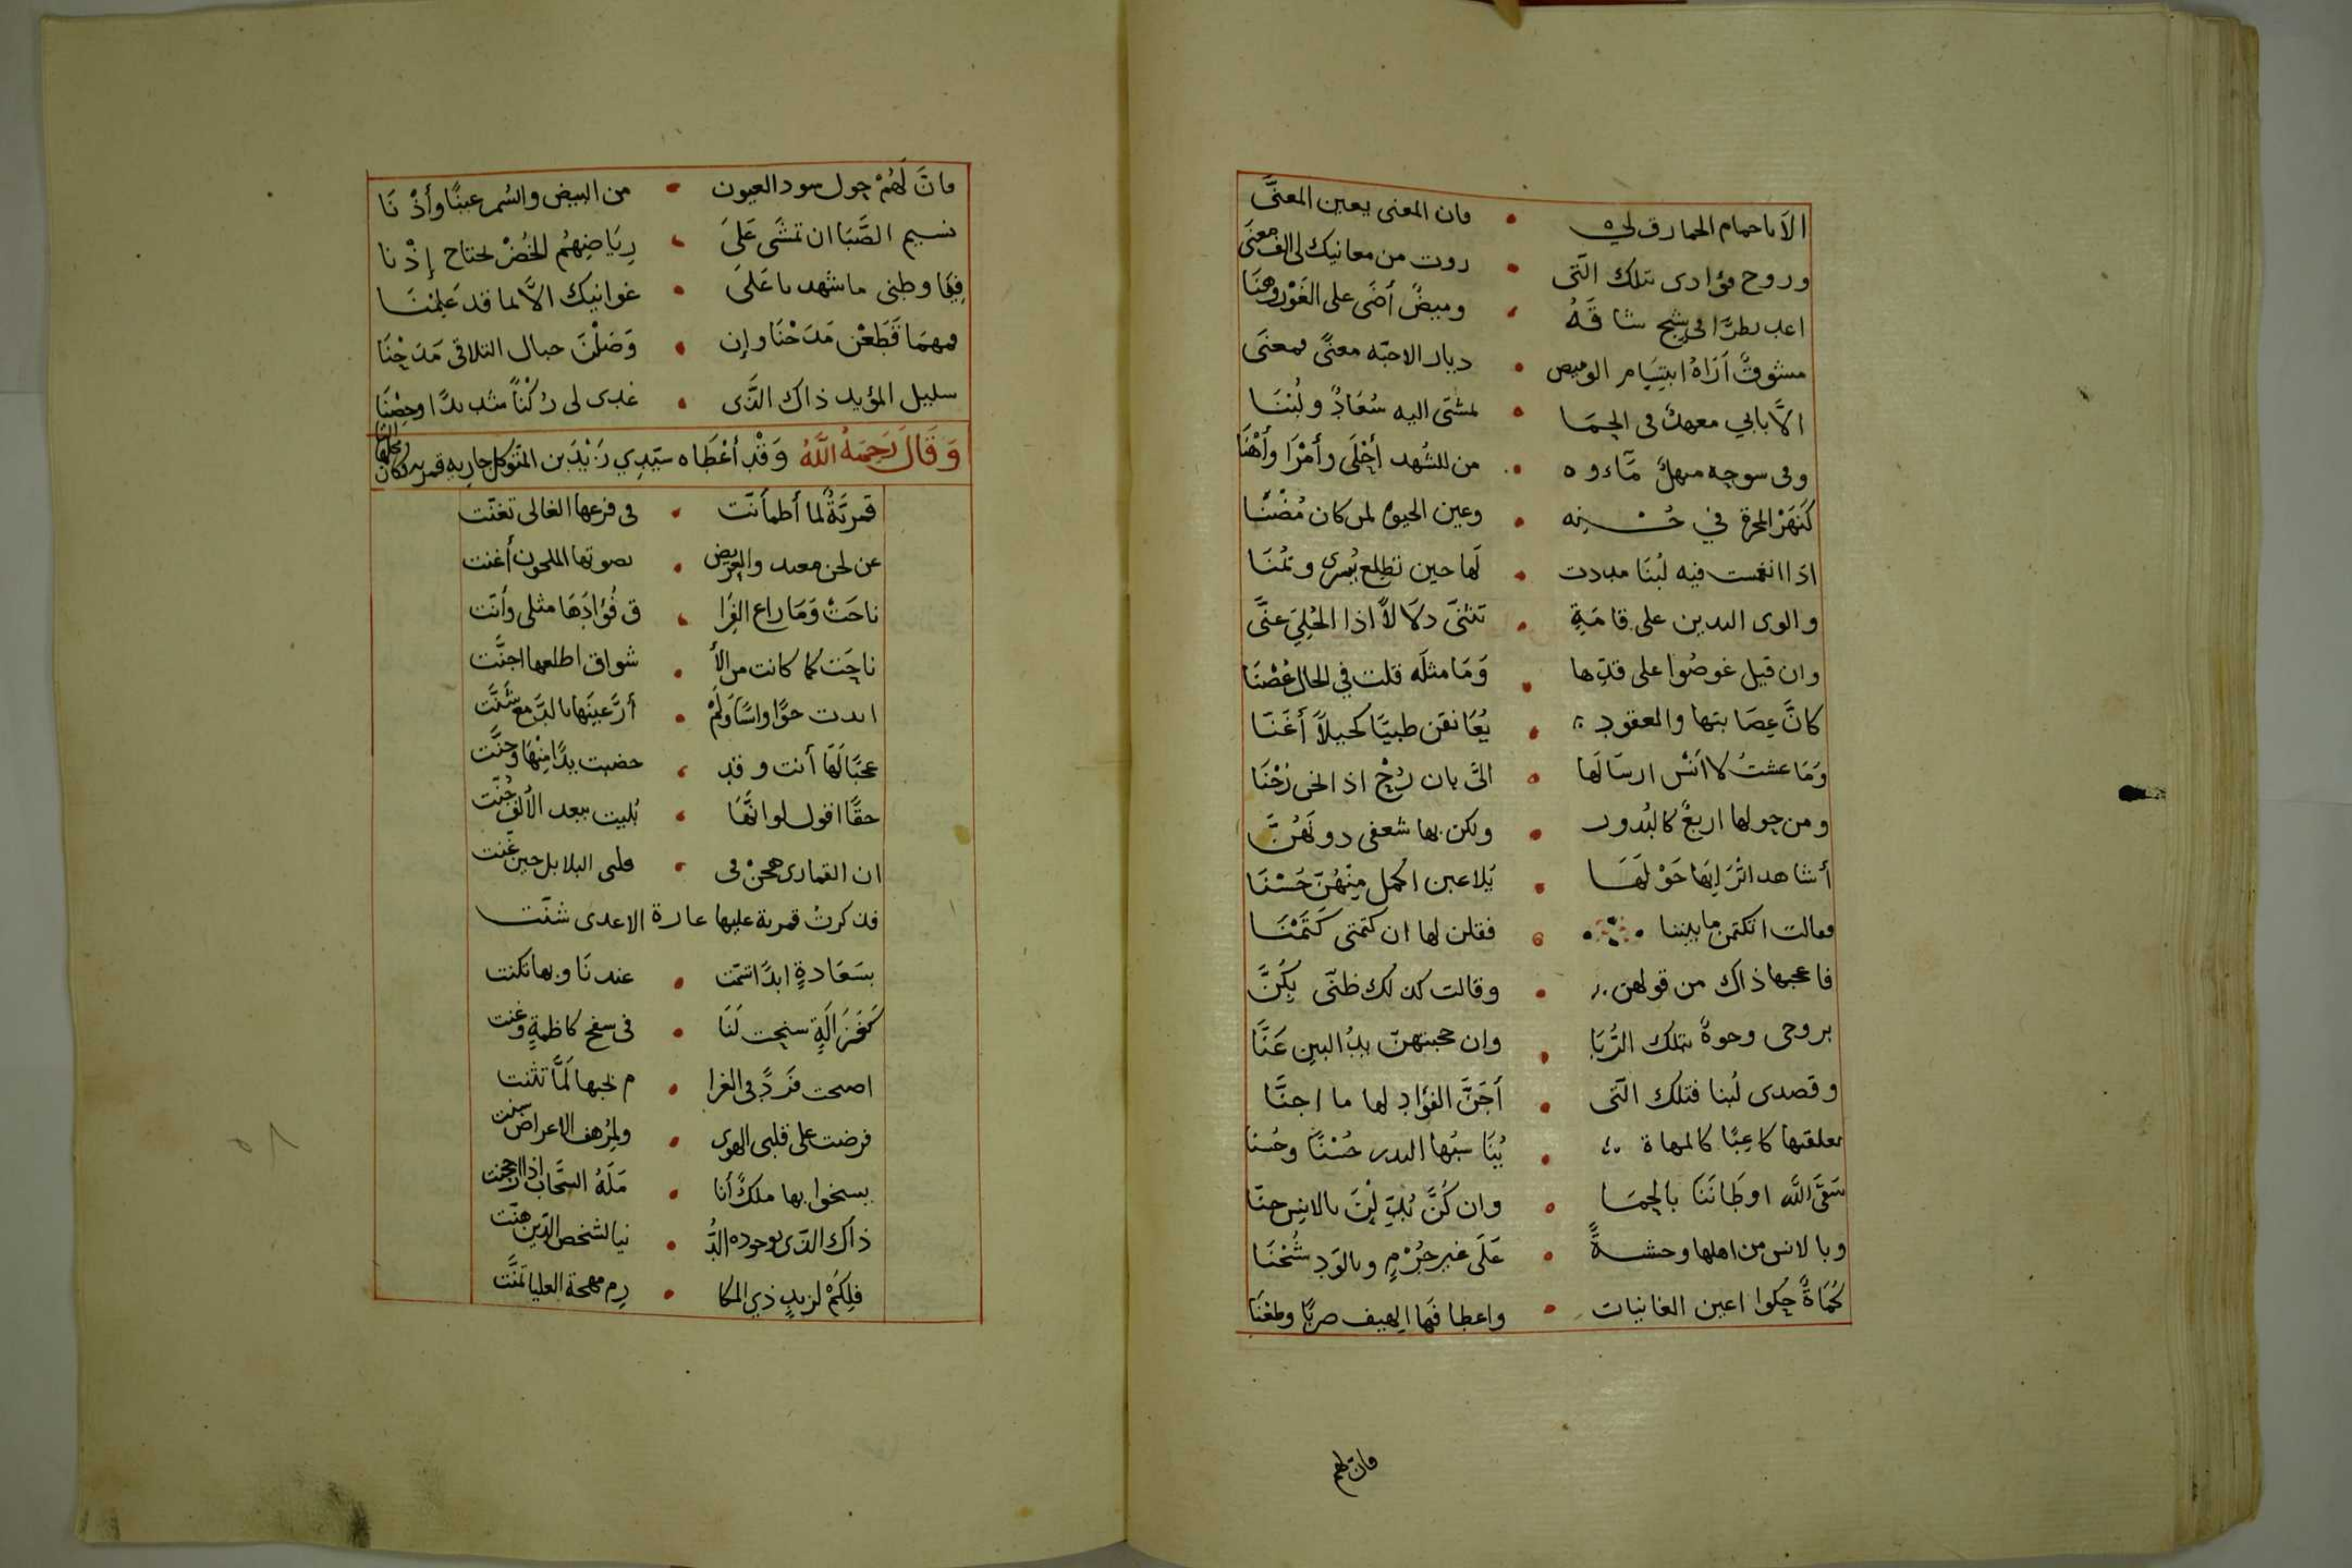 الا يا حمام الحمارق لي • فان المعنى يعين المعنَّى
وروح فؤادى بتلك الّتى • روت من معانيك لى الف معنىَ
اعد نظرًا فى شج شاقَهُ • وميضٌ أضَى على الغَوْر وهنًا
مشوقٌ أرَاهُ ابتِسَام الوميض • ديار الاحبّه معنًى فمعنىَ
الاَ بابي معهدٌ فى الحِمَا • تمشتى اليه سُعَادٌ ولُبْنَا
وفى سوحِه منهلٌ مَّاءوه • من الشهد أحْلَى وأمْرَا وأهْنَا
كَنَهَرْ المجرة في حُسْنِه • وعين الحيوة لمن كان مُضْنَا
اذا انغمست فيه لُبنَا مددت • لَها حين تطلع يُسرى ويُمْنَا
والوى اليدين على قامَةٍ • تثنىَّ دلاَلاً اذا الحُلِىَ عنَّى
وان قيل غوصُوا على قدّها • وَمَا مثلَه قلت في الحال غُصْنَا
كانَّ عِصَابتها والعقود • يُعَانقن ظبيًا كحيلاً أغَنّا
وَمَا عشتُ لا أنْسَ ارسَالَها • الىَّ بان رُحْ اذا الحى رُحْنَا
ومن حولها اربعٌ كالبُدور • ولكن بها شعفى دونَهُنَّ
أشاهد اتْرَابَها حَوْلَهَا • يُلاعبن اكمل مِنْهُنّ حُسْنَا
فقالت اتكتمن ما بيننا • فقلن لها ان كتمتى كَتَمْنَا
فاعجبها ذاك من قولهن • وقالت كذلك ظنّى بِكُنَّ
بروحى وجوهٌ بتلك الرُّبَا • وان حجبتهنّ يدُ البين عَنَّا
وقصدى لُبنا فتلك الّتى • أجَنَّ الفؤاد لها ما اجنَّا
تعلقتها كاعِبًا كالمهاة • يُنَاسبُها البدر حُسْنًا وحُسنا
سَقىَ اللّه اوطَانَنَا بالحِمَا • وان كُنَّ بُدِّلْنَ بالانِس جنّا
وبالانس من اهلها وحشةً • عَلَى غير جُرْمٍ وبالوَدِ شُحْنَا
كُمَاةً حِكوا اعين الغانيات • واعطافَها الهيف ضربًا وطعْنَا
فان لهم
فانَّ لَهُمْ حول سود العيون • من البيض والسُمر عينًا وأُذْنَا
نسيم الصَّبَا ان تمشَّى عَلىَ • رِيَاضِهُم الخُضْرْ يحتاج إذْنا
فيَا وطنى ما شهدنا عَلىَ • غوانيك الاَّ بما قد عَلِمْنَا
فمهمَا قَطَعْن مَدَحْنَا وإن • وَصَلْنَ حبال التلاقى مَدَحْنَا
سليل المؤيد ذاك الذَّى • غدى لى رُكْنًا شديدًا وحِصْنَا
وَقَالَ رَحِمَهُ اللَّهُ وَقْد أعْطَاه سيّدِي زَيْدَ بن المتوكل جاريه قمريه وكان
قمريَّةٌ لما أطمأنّت • فى فرعها الغالى تغنّت
عن لحن معبد والغريض • بصوتها الملحون أغنت
ناحَتْ وَمَا راع الفِرَا • ق فُؤادَهَا مثلى وأنّت
ناحَت كما كانت من الأ • شواق اطلعها اجنَّت
ابدت جوًّا واسًا وَلَمْ • أرَ عينَها بالدّمع شَنَّت
عجبًا لَها أنت وقد • خضبت يدًا مِنْهَا وحنَّت
حقًا اقول لو انَّهَا • بُليت ببعد الأُلفِ جُنّت
ان القمارى هجنْ فى • قلبى البلابل حين غنّت
فذكرت قمرية عليها غارة الاعدى شنّت
بسَعَادةٍ ابدًا اتمّت • عندنَا وبها تكنت
كَغَزَالَةٍ سنحت لَنَا • فى سفح كاظمةٍ وعنت
اصبحت فَرَدًّ فى الغرا • م بحبها لَمَّا تثنت
فرضت على قلبى الهوى • ولِمُرْهف الاعراض سنّت
يسخوا بها ملكٌ أنا • مَلَهُ السَّحَاب اذا ارجحنت
ذاك الّذى بوجوده الدُّ • نيا لشخص الدّين هنّت
فلِكَمْ لزيدٍ ذي المكا • رِم مهجة العليا تمنَّت